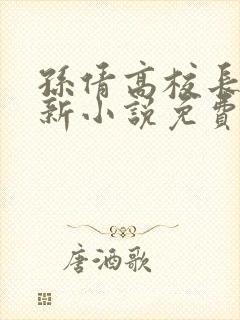 孫倩高校長
新小說免費
唐酒歌